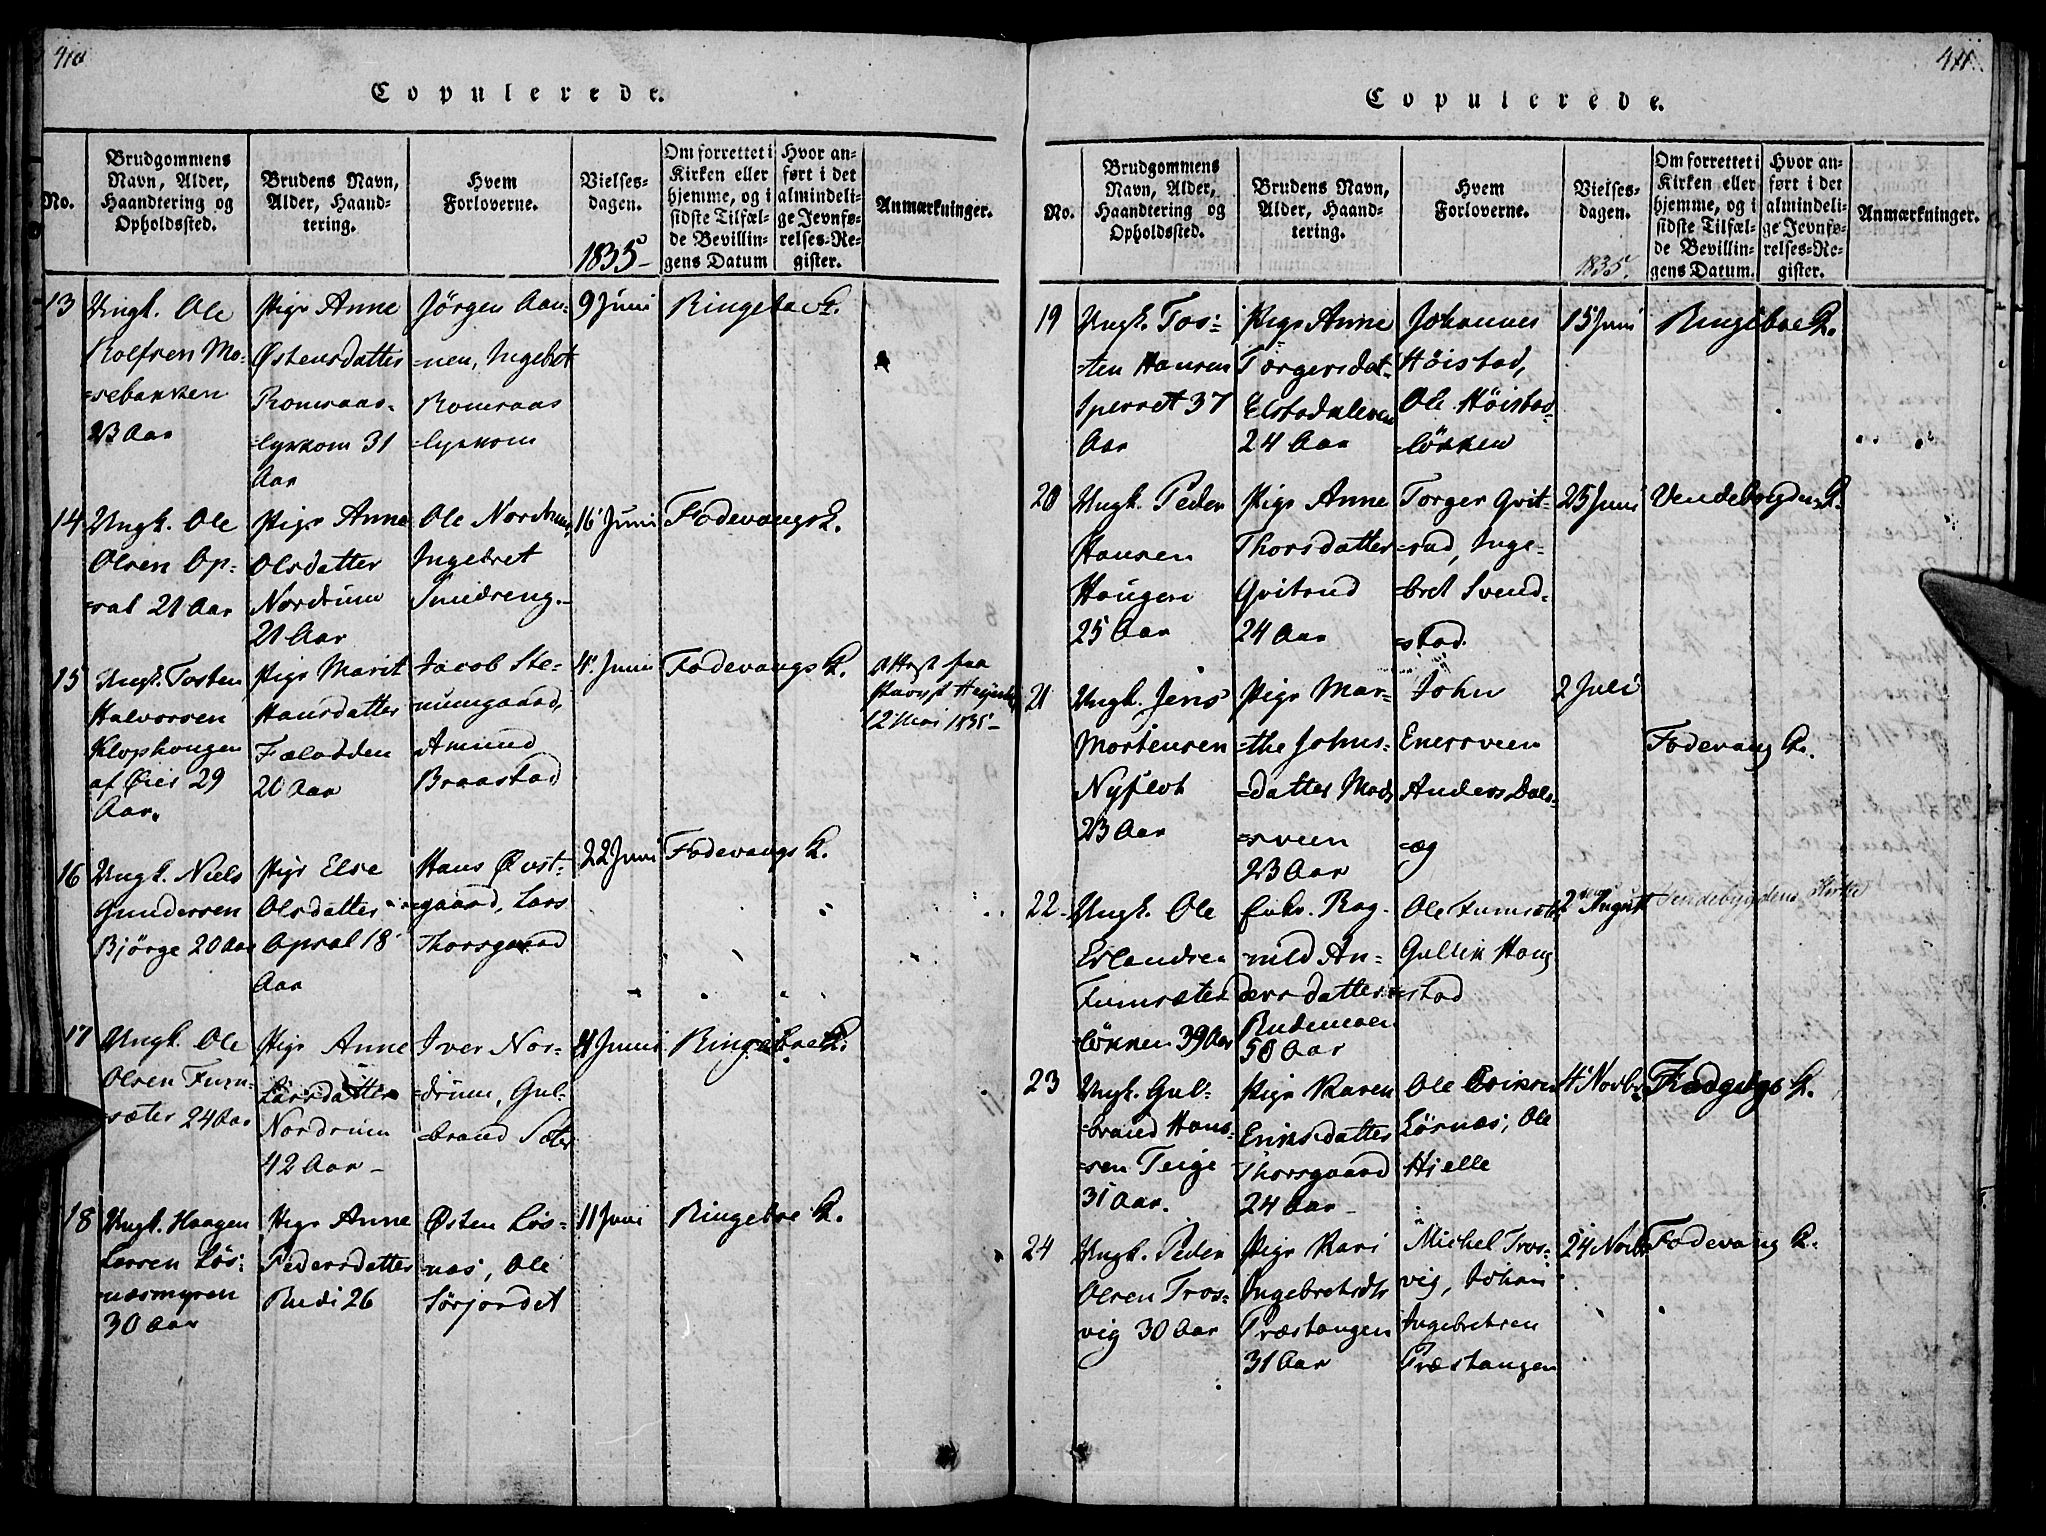 410
Copulerede.
No.
Brudgommens
Navn, Alder,
Haandtering og
Opholdssted.
Brudens Navn,
Alder, Haand-
tering.
Hvem
Forloverne.
Vielses-
dagen.
1835
Om forrettet i
Kirken eller
hjemme, og i
sidste Tilfæl-
de Bevillin-
gens Datum
Hvor an-
ført i det
almindeli-
ge Jevnfø-
relses-Re-
gister.
Anmærkninger.
13
Ungk. Ole
Rolfsen Mo-
=sebakken
23 Aar
Pige Anne
Østensdatter
Romsaas-
=lyekom 31
Aar
Jörgen Aan-
=nen, Ingebret
Romsaas
=lyekom
9 Juni
Ringeboe K.
14
Ungk. Ole
Olsen Op-
=sal 21 Aar
Pige Anne
Olsdatter
Nordrum
21 Aar
Ole Nordrum,
Ingebret
Smidseng.
16 Juni
Fodevangs K.
15
Ungk. Tosten
Halvorsen
Klophougen
af Øier 29
Aar.
Pige Marit
Hansdatter
Fæladden
20 Aar
Jacob Ste-
numgaard,
Amund
Braastad
4 Juni
Fodevangs K.
Attest fra
12 Mai 1835
16
Ungk. Niels
Gundersen
Bjørge 20 Aar
Pige Else
Olsdatter
Opsal 18
Aar
Hans Øvst-
gaard, Lars
Thorsgaard
22 Juni
Fodevangs K.
17
Ungk. Ole
Olsen Fum-
=sæter 24 Aar
Pige Anne
Larsdatter
Nordrum
42 Aar
Iver Nor-
=drum, Gul-
=brand Sæter
11 Juni
Ringeboe K.
18
Ungk. Haagen
Larsen Lös-
næsmyren
30 Aar
Pige Anne
Pedersdatter
Rudi 26
Østen Løs-
næs, Ole
Sørjordet
11 Juni
Ringeboe K.
411
Copulerede.
No.
Brudgommens
Navn, Alder,
Haandtering og
Opholdssted.
Brudens Navn,
Alder, Haand-
tering.
Hvem
Forloverne.
Vielses-
dagen.
1835.
Om forrettet i
Kirken eller
hjemme, og i
sidste Tilfæl-
de Bevillin-
gens Datum.
Hvor an-
ført i det
almindeli-
ge Jevnfø-
relses-Re-
gister.
Anmærkninger.
19
Ungk. Tos-
=ten Hansen
Sperret 37
Aar
Pige Anne
Torgersdat-
Elstadkleven
24 Aar
Johannes
Höistad,
Ole Höistad-
=lökken
15 Juni
Ringeboe K.
20
Ungk. Peder
Hansen
Haugen
25 Aar
Pige Anne
Thorsdatter
Qvitrud
24 Aar
Torger Qvit-
=rud, Inge-
=bret Svend-
=stad.
25 Juni
Vendebygdens K.
21
Ungk. Jens
Mortensen
Nyfløt
23 Aar
Pige Mar-
=the Johns-
=datter Mads
=sveen
23 Aar
John
Enersveen
Anders Dals-
=æg
2 Juli
Fodevang K.
22
Ungk. Ole
Erlandsen
Fumsæter
=lökken 39 Aar
Enke. Rag-
=nild An-
dersdatter
Rudemoen
50 Aar
Ole Fumsæter
Gullik Haug
=stad
2 August
Vendebygdens Kirke
23
Ungk. Gul-
=brand Hans-
=sen Teige
31 Aar.
Pige Karen
Eriksdatter
Thorsgaard
24 Aar
Ole Eriksen
Lösnæs, Ole
Hjelle
4 Novbr
K.
24
Ungk. Peder
Olsen Tros-
vig 30 Aar
Pige Kari
Ingebretsdtr
Træstangen
31 Aar
Michel Tros-
vig, Johan
Ingebretsen
Træstangen
24 Novbr
Fodevang K.